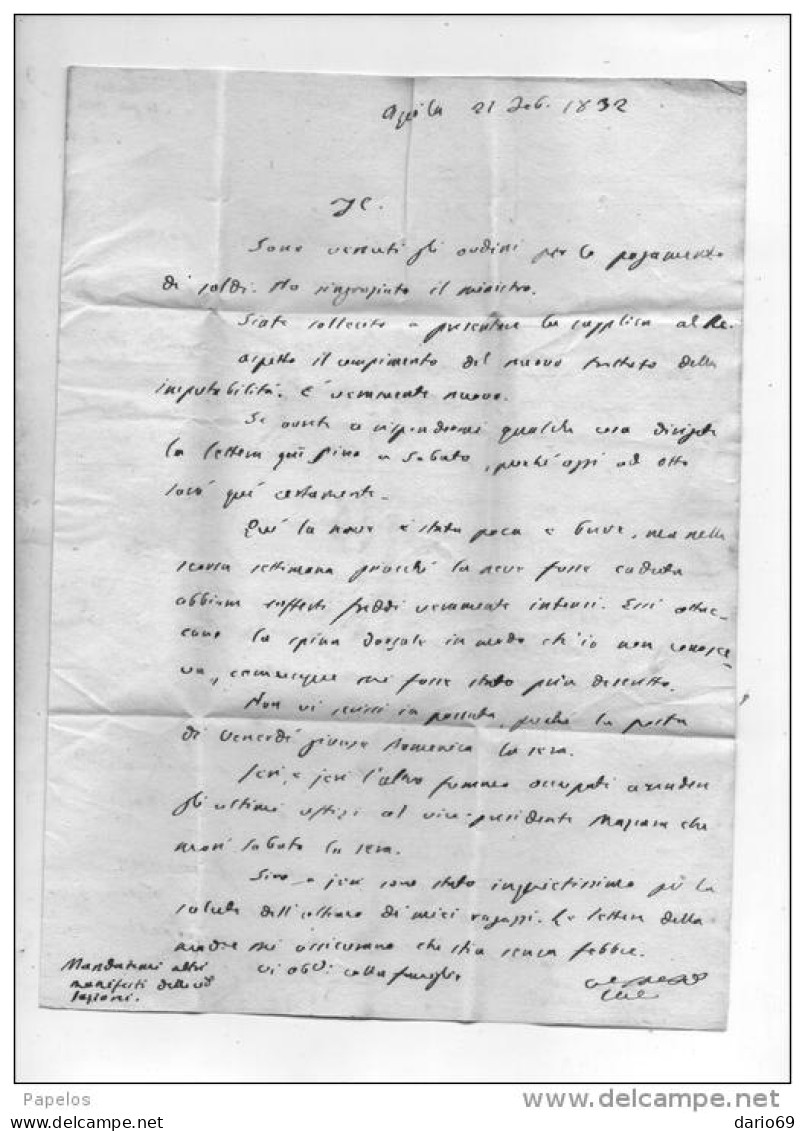 Aquila 21 Feb. 1832
Sono venuti gli ordini per lo pagamento
di soldi. Ho ringraziato il ministro.
Siate sollecito a presentare la supplica al Re.
Aspetto il compimento del nuovo trattato della
imputabilità. È veramente nuovo.
Se avete a rispondermi qualche cosa dirigete
la lettera qui fino a Sabato, perché oggi ad otto
sarò qui certamente.
Qui la neve è stata poca e breve, ma nella
scorsa settimana perché la neve fosse caduta
abbiam sofferti freddi veramente intensi. Essi attac-
cano la spina dorsale in modo ch'io non conosce-
va, comunque mi fosse stato pria descritto.
Non vi scrissi in passata, perché la posta
di venerdì giunse Domenica la sera.
Jeri, e jeri l'altro fummo occupati a render
gli ultimi uffizi al vice-presidente che
morì sabato la sera.
Sino a jeri sono stato inquietissimo per la
salute dell'ultimo di miei ragazzi. Le lettere della
madre mi assicurano che stia senza febbre.
Mandatemi altri
manifesti delle
lezioni.
vi colla famiglia
Papelos
www.delcampe.net
dario69